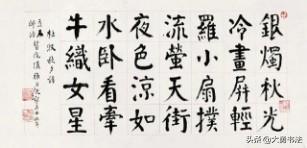 銀燭秋光
冷畫屏輕
羅小扇撲
流螢天街
夜色涼如
水臥看牽
牛織女星
杜牧秋夕詩
头条 @大勇书法